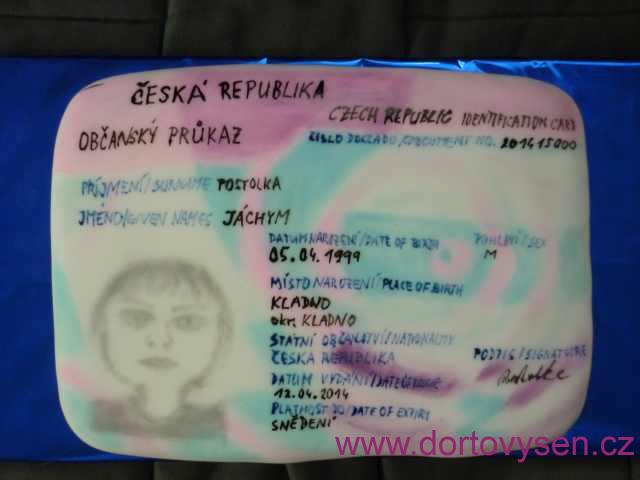 ČESKÁ REPUBLIKA
CZECH REPUBLIC IDENTIFICATION CARD
OBČANSKÝ PRŮKAZ
ČÍSLO DOKLADU/DOCUMENT NO. 201415000
PŘÍJMENÍ/SURNAME POSTOLKA
JMÉNO/GIVEN NAMES JÁCHYM
DATUM NAROZENÍ/DATE OF BIRTH POHLAVÍ/SEX
05.04.1999 M
MÍSTO NAROZENÍ/PLACE OF BIRTH
KLADNO
okr. KLADNO
STÁTNÍ OBČANSTVÍ/NATIONALITY
ČESKÁ REPUBLIKA PODPIS/SIGNATURE
DATUM VYDÁNÍ/DATE OF ISSUE
12.04.2014
PLATNOST DO/DATE OF EXPIRY
SNĚDENÍ
www.dortovysen.cz